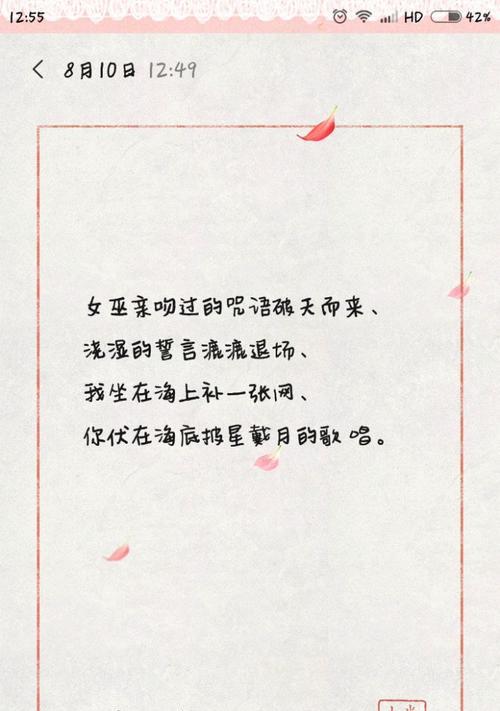 12:55 HD 42%
8月10日 12:49
女巫亲吻过的咒语破天而来、
浇湿的誓言漉漉退场、
我坐在海上补一张网、
你伏在海底披星戴月的歌唱。